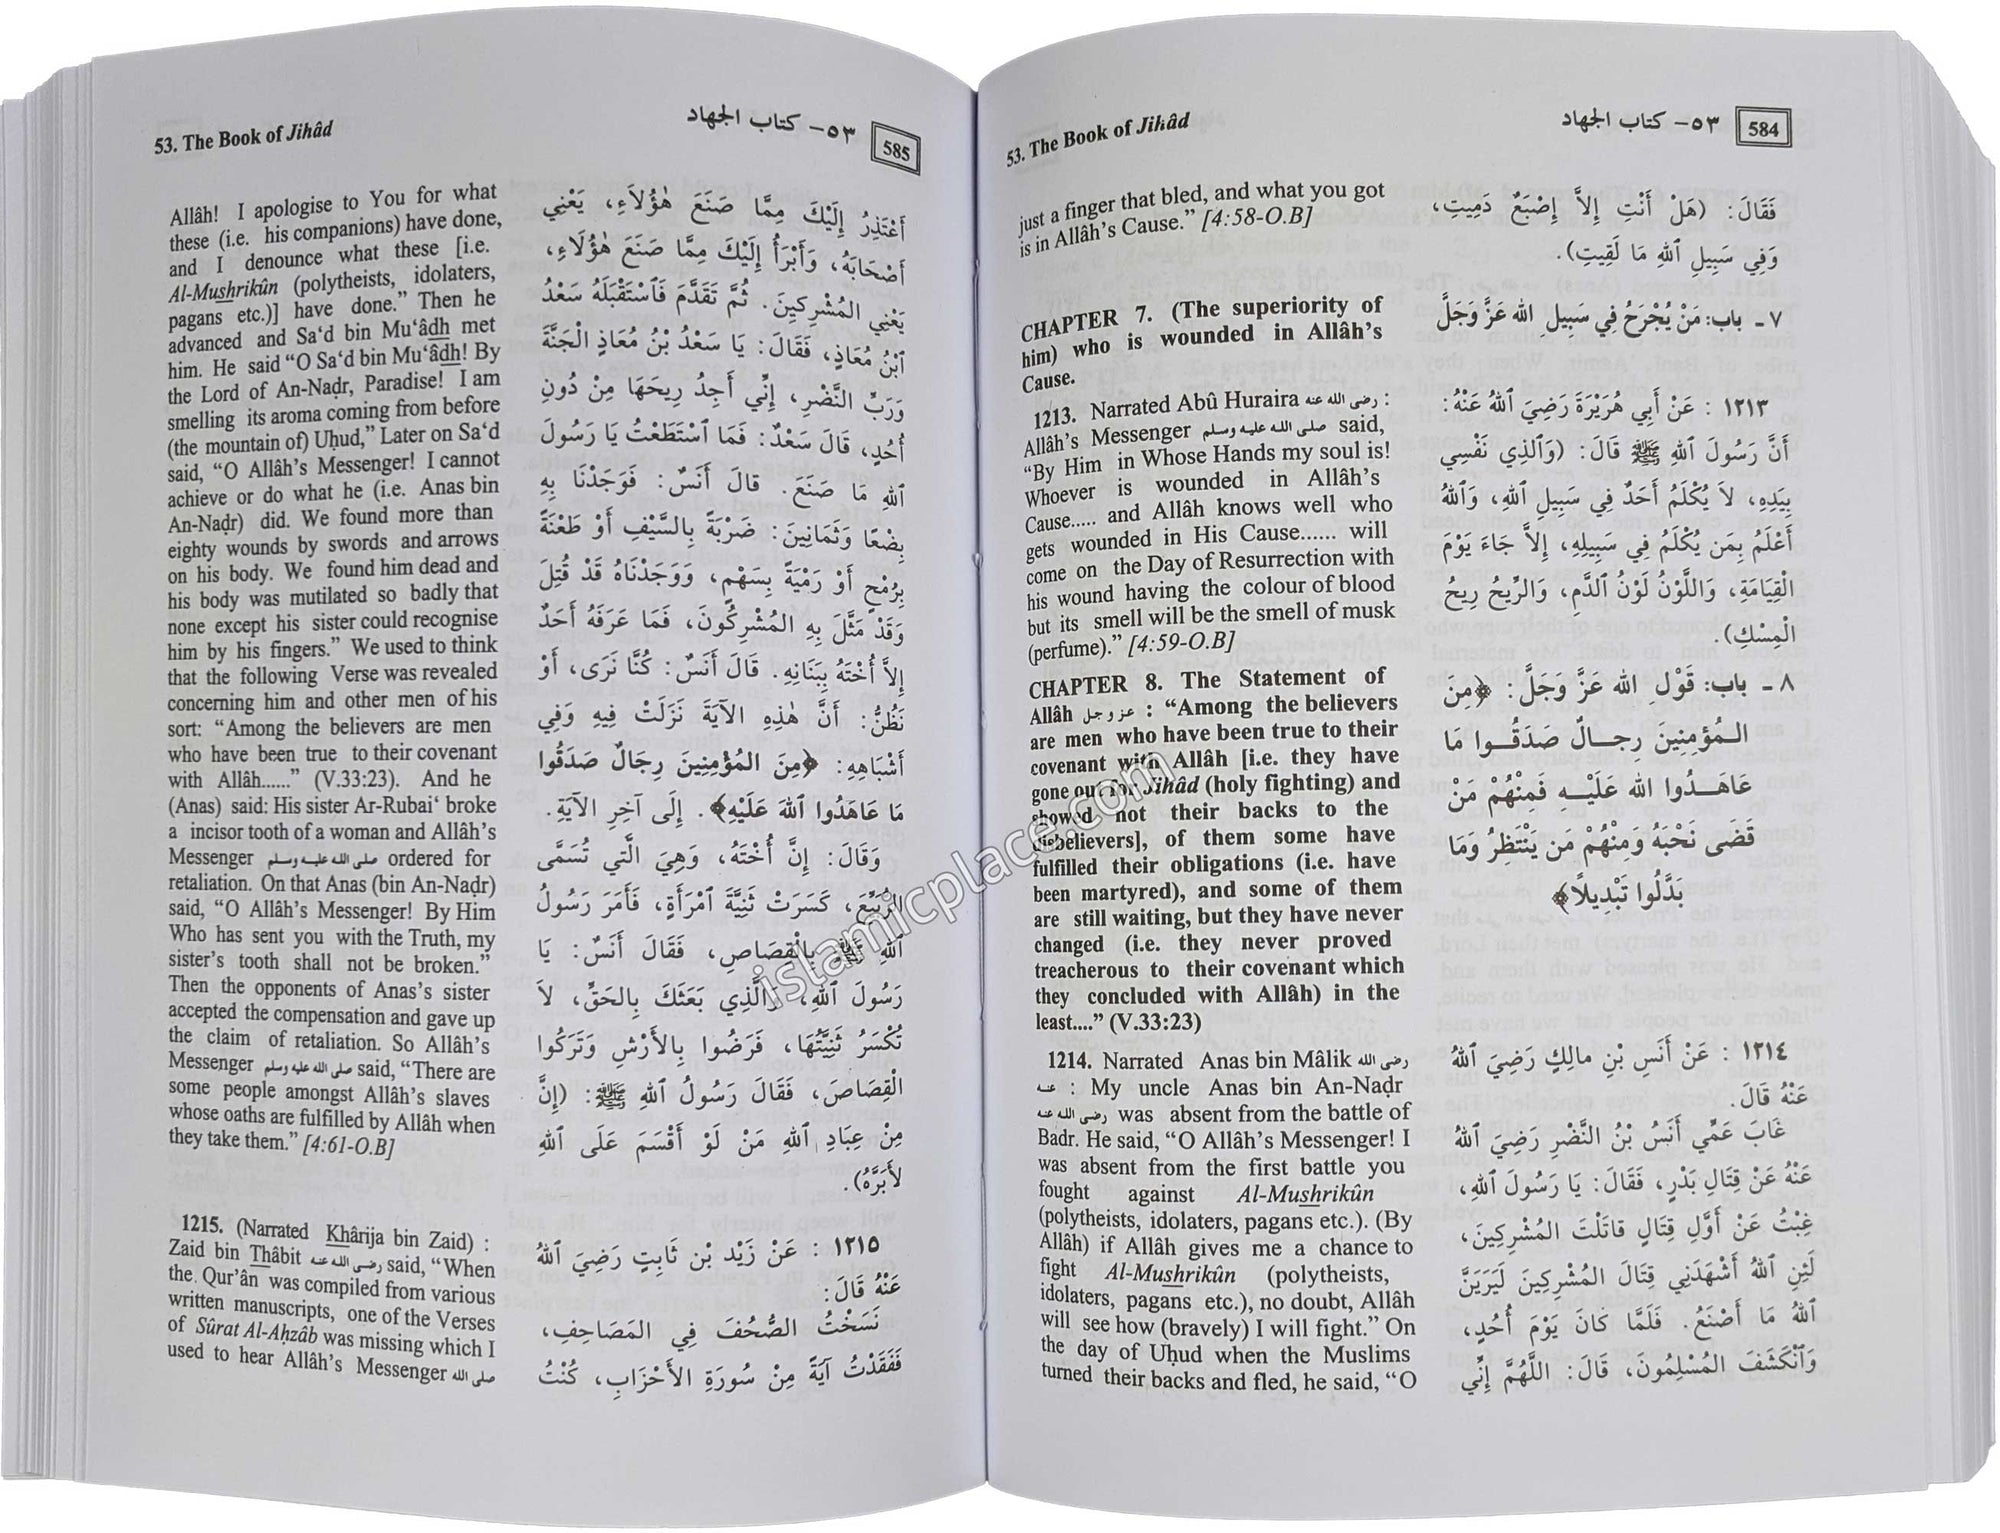 53. The Book of Jihâd
٥٣- كتاب الجهاد
584
just a finger that bled, and what you got
is in Allâh's Cause." [4:58-O.B]
CHAPTER 7. (The superiority of
him) who is wounded in Allâh's
Cause.
1213. Narrated Abû Huraira رضى الله عنه :
Allâh's Messenger صلى الله عليه وسلم said,
"By Him in Whose Hands my soul is!
Whoever is wounded in Allâh's
Cause..... and Allâh knows well who
gets wounded in His Cause...... will
come on the Day of Resurrection with
his wound having the colour of blood
but its smell will be the smell of musk
(perfume)." [4:59-O.B]
CHAPTER 8. The Statement of
Allâh عز وجل : "Among the believers
are men who have been true to their
covenant with Allâh [i.e. they have
gone out for Jihâd (holy fighting) and
showed not their backs to the
disbelievers], of them some have
fulfilled their obligations (i.e. have
been martyred), and some of them
are still waiting, but they have never
changed (i.e. they never proved
treacherous to their covenant which
they concluded with Allâh) in the
least...." (V.33:23)
1214. Narrated Anas bin Mâlik رضى الله
عنه : My uncle Anas bin An-Naḍr
رضى الله عنه was absent from the battle of
Badr. He said, "O Allâh's Messenger! I
was absent from the first battle you
fought against Al-Mushrikûn
(polytheists, idolaters, pagans etc.). (By
Allâh) if Allâh gives me a chance to
fight Al-Mushrikûn (polytheists,
idolaters, pagans etc.), no doubt, Allâh
will see how (bravely) I will fight." On
the day of Uḥud when the Muslims
turned their backs and fled, he said, "O
فَقَالَ: (هَلْ أَنْتِ إِلاَّ إِصْبَعٌ دَمِيتِ،
وَفِي سَبِيلِ اللهِ مَا لَقِيتِ).
٧ ـ باب: مَنْ يُجْرَحُ فِي سَبِيلِ الله عَزَّ وَجَلَّ
١٢١٣ : عَنْ أَبِي هُرَيْرَةَ رَضِيَ اللهُ عَنْهُ:
أَنَّ رَسُولَ اللهِ ﷺ قَالَ: (وَالَّذِي نَفْسِي
بِيَدِهِ، لاَ يُكْلَمُ أَحَدٌ فِي سَبِيلِ اللهِ، وَاللهُ
أَعْلَمُ بِمَن يُكْلَمُ فِي سَبِيلِهِ، إِلاَّ جَاءَ يَوْمَ
القِيَامَةِ، وَاللَّوْنُ لَوْنُ الدَّمِ، وَالرِّيحُ رِيحُ
الْمِسْكِ).
٨ ـ باب: قَوْلِ الله عَزَّ وَجَلَّ: ﴿مِنَ
المُؤمِنِينَ رِجالٌ صَدَقُوا مَا
عَاهَدُوا الله عَلَيْهِ فَمِنْهُمْ مَنْ
قَضَى نَحْبَهُ وَمِنْهُمْ مَن يَنْتَظِرُ وَمَا
بَدَّلُوا تَبْدِيلاً﴾
١٢١٤ : عَنْ أَنَسِ بْنِ مالِكٍ رَضِيَ اللهُ
عَنْهُ قَالَ.
غَابَ عَمِّي أَنَسُ بْنُ النَّضْرِ رَضِيَ اللهُ
عَنْهُ عَنْ قِتَالِ بَدْرٍ، فَقَالَ: يَا رَسُولَ اللهِ،
غِبْتُ عَنْ أَوَّلِ قِتَالٍ قَاتَلْتَ المُشْرِكِينَ،
لَئِنِ اللهُ أَشْهَدَنِي قِتَالَ المُشْرِكِينَ لَيَرَيَنَّ
اللهُ مَا أَصْنَعُ. فَلَمَّا كَانَ يَوْمَ أُحُدٍ،
وَانْكَشَفَ المُسْلِمُونَ، قَالَ: اللَّهُمَّ إِنِّي
53. The Book of Jihâd
٥٣- كتاب الجهاد
585
Allâh! I apologise to You for what
these (i.e. his companions) have done,
and I denounce what these [i.e.
Al-Mushrikûn (polytheists, idolaters,
pagans etc.)] have done." Then he
advanced and Sa‘d bin Mu‘âdh met
him. He said "O Sa‘d bin Mu‘âdh! By
the Lord of An-Naḍr, Paradise! I am
smelling its aroma coming from before
(the mountain of) Uḥud," Later on Sa‘d
said, "O Allâh's Messenger! I cannot
achieve or do what he (i.e. Anas bin
An-Naḍr) did. We found more than
eighty wounds by swords and arrows
on his body. We found him dead and
his body was mutilated so badly that
none except his sister could recognise
him by his fingers." We used to think
that the following Verse was revealed
concerning him and other men of his
sort: "Among the believers are men
who have been true to their covenant
with Allâh......" (V.33:23). And he
(Anas) said: His sister Ar-Rubai‘ broke
a incisor tooth of a woman and Allâh's
Messenger صلى الله عليه وسلم ordered for
retaliation. On that Anas (bin An-Naḍr)
said, "O Allâh's Messenger! By Him
Who has sent you with the Truth, my
sister's tooth shall not be broken."
Then the opponents of Anas's sister
accepted the compensation and gave up
the claim of retaliation. So Allâh's
Messenger صلى الله عليه وسلم said, "There are
some people amongst Allâh's slaves
whose oaths are fulfilled by Allâh when
they take them." [4:61-O.B]
1215. (Narrated Khârija bin Zaid) :
Zaid bin Thâbit رضى الله عنه said, "When
the Qur'ân was compiled from various
written manuscripts, one of the Verses
of Sûrat Al-Aḥzâb was missing which I
used to hear Allâh's Messenger صلى الله
أَعْتَذِرُ إِلَيْكَ مِمَّا صَنَعَ هٰؤُلاَءِ، يَعْنِي
أَصْحَابَهُ، وَأَبْرَأُ إِلَيْكَ مِمَّا صَنَعَ هٰؤُلاَءِ،
يَعْنِي المُشْرِكِينَ. ثُمَّ تَقَدَّمَ فَاسْتَقْبَلَهُ سَعْدُ
ابْنُ مُعَاذٍ، فَقَالَ: يَا سَعْدُ بْنُ مُعَاذٍ الْجَنَّةَ
وَرَبِّ النَّضْرِ، إِنِّي أَجِدُ رِيحَهَا مِنْ دُونِ
أُحُدٍ، قَالَ سَعْدٌ: فَمَا اسْتَطَعْتُ يَا رَسُولَ
اللهِ مَا صَنَعَ. قالَ أَنَسٌ: فَوَجَدْنَا بِهِ
بِضْعًا وَثَمَانِينَ: ضَرْبَةً بِالسَّيْفِ أَوْ طَعْنَةً
بِرُمْحٍ أَوْ رَمْيَةً بِسَهْمٍ، وَوَجَدْنَاهُ قَدْ قُتِلَ
وَقَدْ مَثَّلَ بِهِ المُشْرِكُونَ، فَمَا عَرَفَهُ أَحَدٌ
إِلاَّ أُخْتُهُ بِبَنَانِهِ. قَالَ أَنَسٌ: كُنَّا نَرَى، أَوْ
نَظُنُّ: أَنَّ هٰذِهِ الآيَةَ نَزَلَتْ فِيهِ وَفِي
أَشْبَاهِهِ: ﴿مِنَ المُؤْمِنِينَ رِجَالٌ صَدَقُوا
مَا عَاهَدُوا اللهَ عَلَيْهِ﴾. إِلَى آخِرِ الآيَةِ.
وَقَالَ: إِنَّ أُخْتَهُ، وَهِيَ الَّتِي تُسَمَّى
الرُّبَيِّعَ، كَسَرَتْ ثَنِيَّةَ امْرَأَةٍ، فَأَمَرَ رَسُولُ
اللهِ ﷺ بِالْقِصَاصِ، فَقَالَ أَنَسٌ: يَا
رَسُولَ اللهِ، وَالَّذِي بَعَثَكَ بِالحَقِّ، لاَ
تُكْسَرُ ثَنِيَّتُهَا، فَرَضُوا بِالأَرْشِ وَتَرَكُوا
الْقِصَاصَ، فَقَالَ رَسُولُ اللهِ ﷺ: (إِنَّ
مِنْ عِبَادِ اللهِ مَنْ لَوْ أَقْسَمَ عَلَى اللهِ
لأَبَرَّهُ).
١٢١٥ : عَنْ زَيْدِ بْنِ ثَابِتٍ رَضِيَ اللهُ
عَنْهُ قَالَ:
نَسَخْتُ الصُّحُفَ فِي المَصَاحِفِ،
فَفَقَدْتُ آيَةً مِنْ سُورَةِ الأَحْزَابِ، كُنْتُ
islamicplace.com